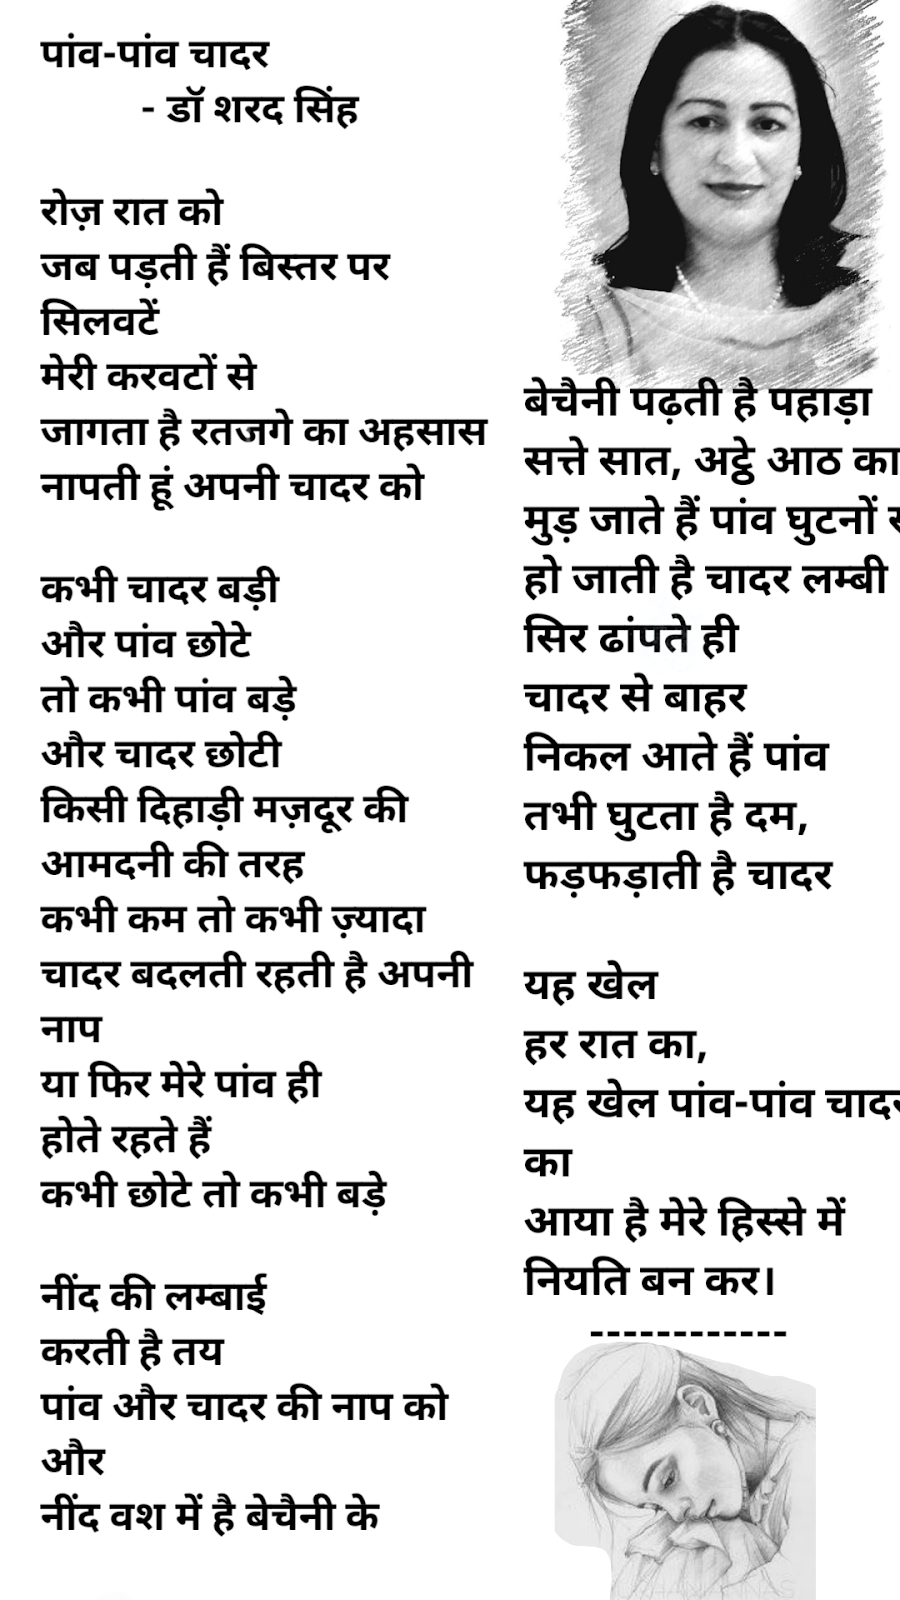 पांव-पांव चादर
- डॉ शरद सिंह
रोज़ रात को
जब पड़ती हैं बिस्तर पर
सिलवटें
मेरी करवटों से
जागता है रतजगे का अहसास
नापती हूं अपनी चादर को
कभी चादर बड़ी
और पांव छोटे
तो कभी पांव बड़े
और चादर छोटी
किसी दिहाड़ी मज़दूर की
आमदनी की तरह
कभी कम तो कभी ज़्यादा
चादर बदलती रहती है अपनी
नाप
या फिर मेरे पांव ही
होते रहते हैं
कभी छोटे तो कभी बड़े
नींद की लम्बाई
करती है तय
पांव और चादर की नाप को
और
नींद वश में है बेचैनी के
बेचैनी पढ़ती है पहाड़ा
सत्ते सात, अट्ठे आठ का
मुड़ जाते हैं पांव घुटनों
हो जाती है चादर लम्बी
सिर ढांपते ही
चादर से बाहर
निकल आते हैं पांव
तभी घुटता है दम,
फड़फड़ाती है चादर
यह खेल
हर रात का,
यह खेल पांव-पांव चादर
का
आया है मेरे हिस्से में
नियति बन कर।
------------